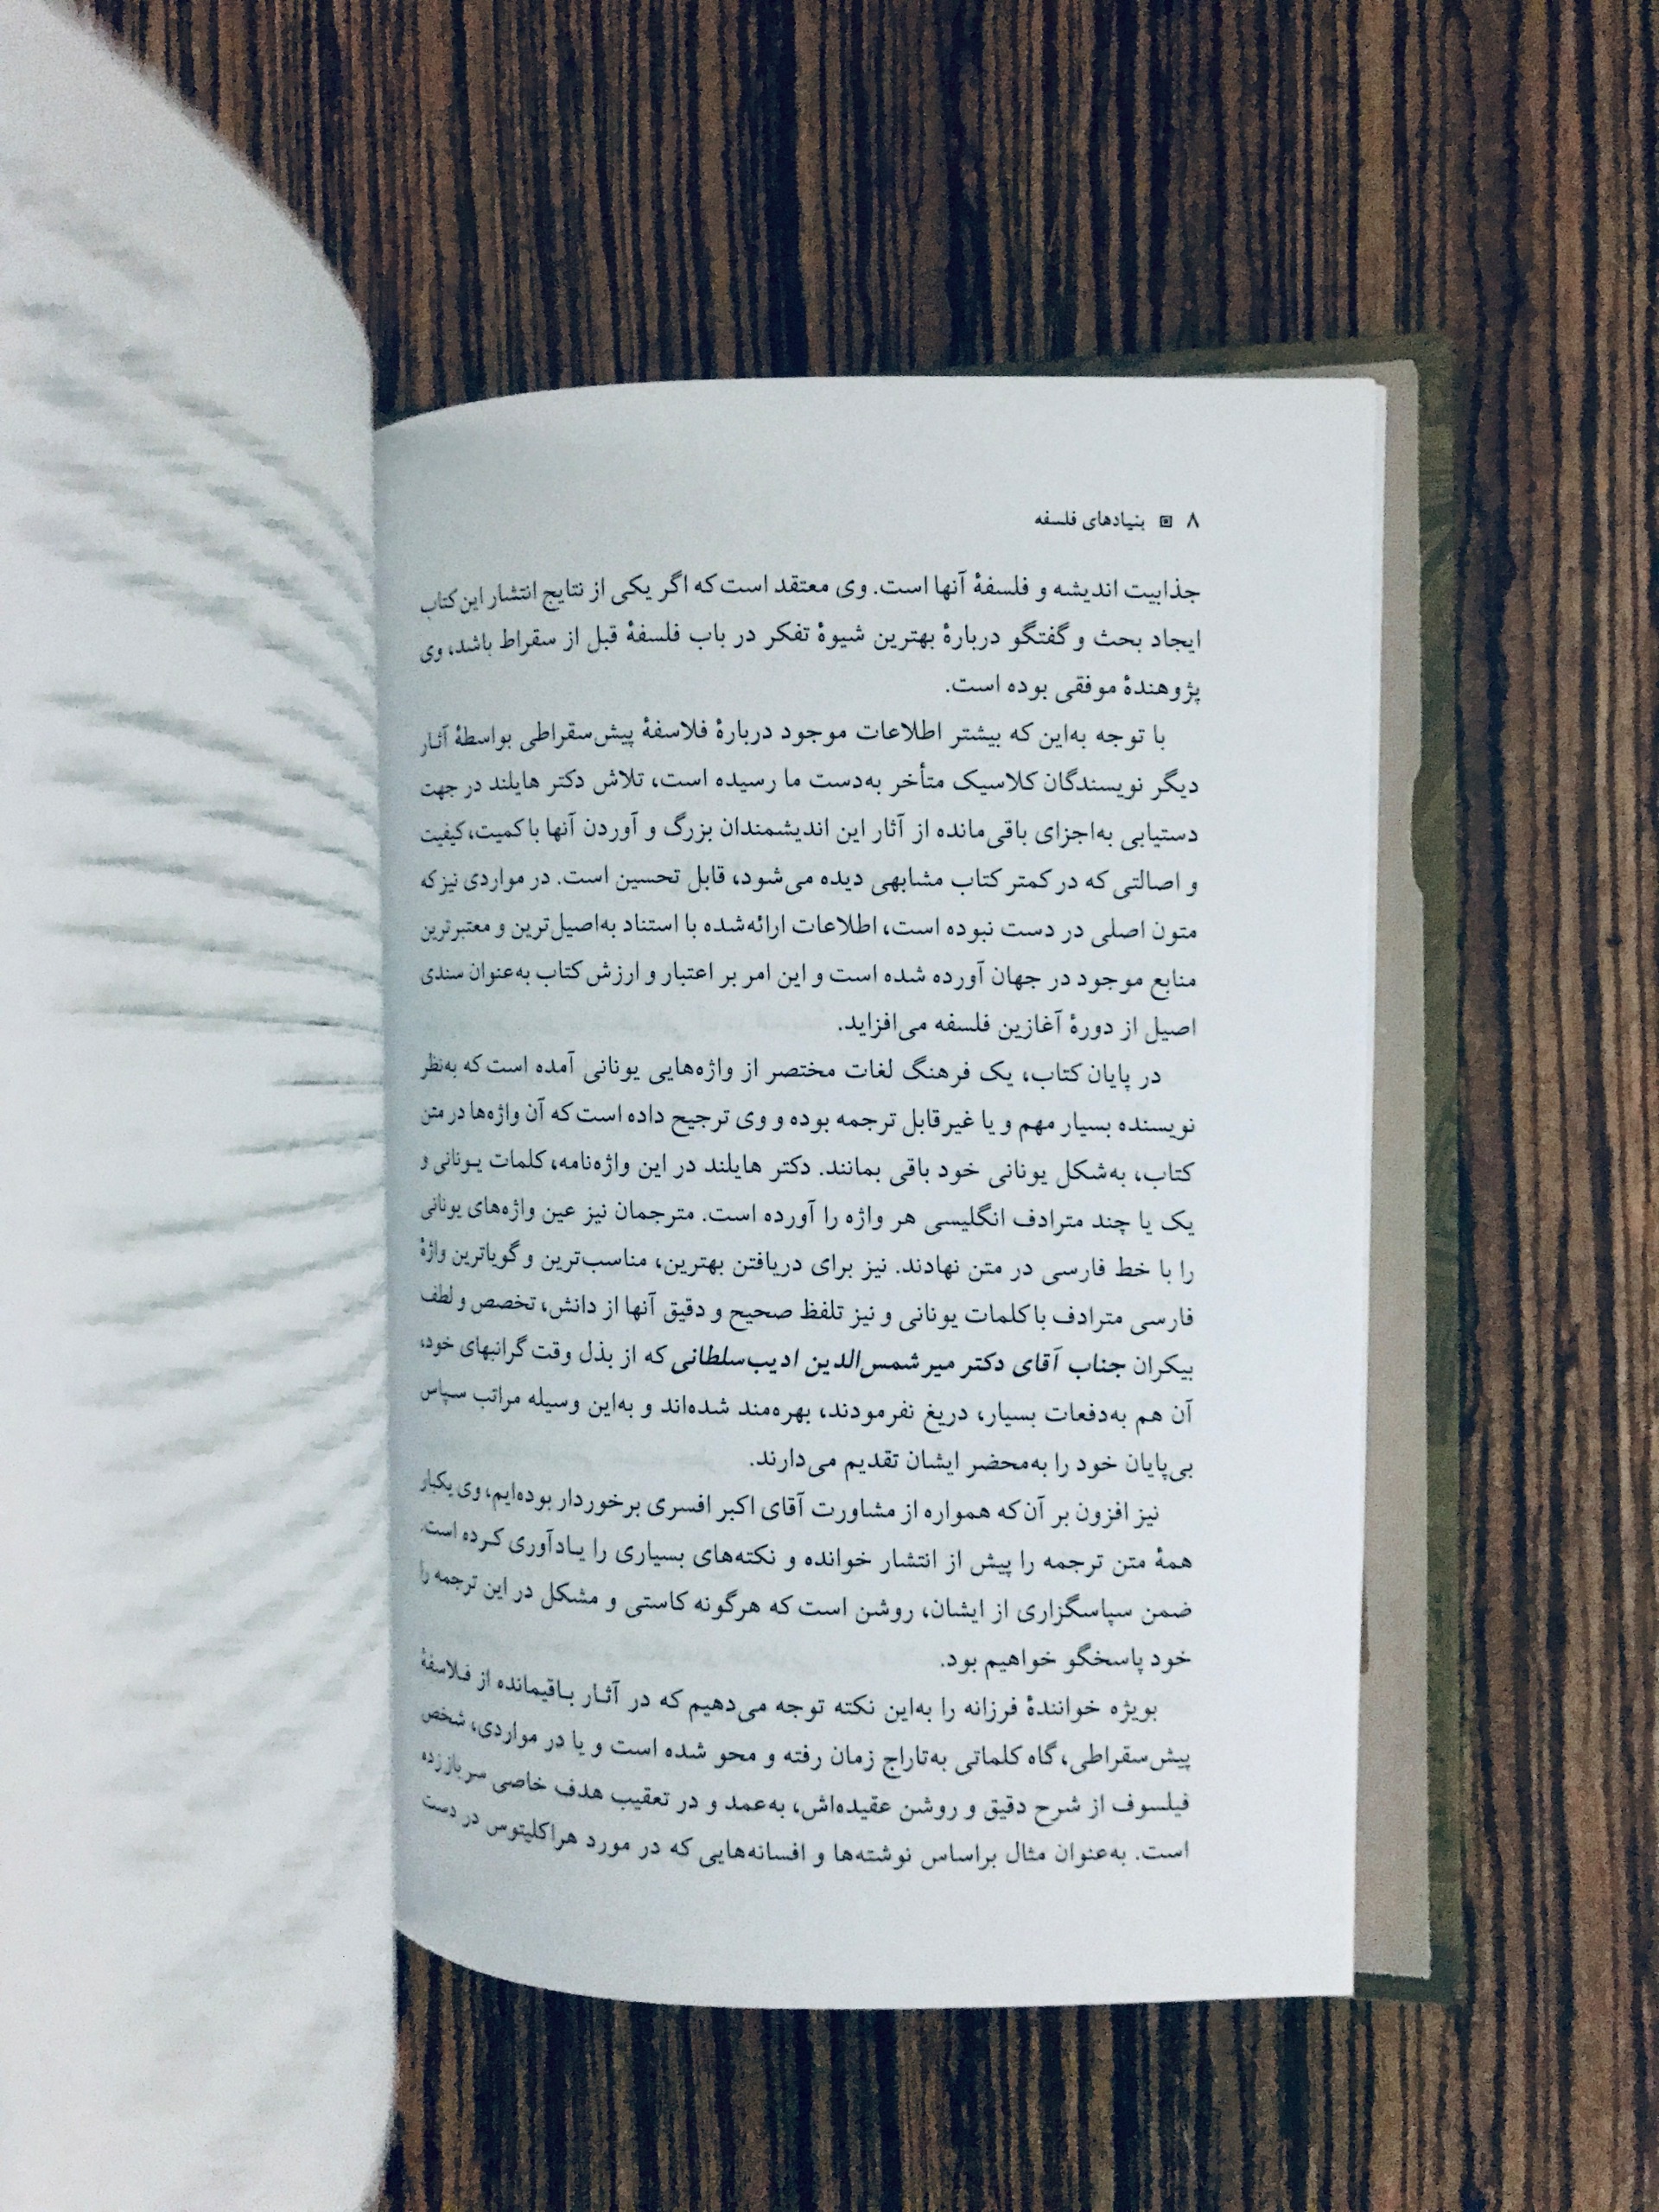 ۸ بنیادهای فلسفه
جذابیت اندیشه و فلسفهٔ آنها است. وی معتقد است که اگر یکی از نتایج انتشار این کتاب
ایجاد بحث و گفتگو دربارهٔ بهترین شیوهٔ تفکر در باب فلسفهٔ قبل از سقراط باشد، وی
پژوهندهٔ موفقی بوده است.
با توجه به‌این که بیشتر اطلاعات موجود دربارهٔ فلاسفهٔ پیش‌سقراطی بواسطهٔ آثار
دیگر نویسندگان کلاسیک متأخر به‌دست ما رسیده است، تلاش دکتر هایلند در جهت
دستیابی به‌اجزای باقی‌مانده از آثار این اندیشمندان بزرگ و آوردن آنها با کمیت، کیفیت
و اصالتی که در کمتر کتاب مشابهی دیده می‌شود، قابل تحسین است. در مواردی نیز که
متون اصلی در دست نبوده است، اطلاعات ارائه‌شده با استناد به‌اصیل‌ترین و معتبرترین
منابع موجود در جهان آورده شده است و این امر بر اعتبار و ارزش کتاب به‌عنوان سندی
اصیل از دورهٔ آغازین فلسفه می‌افزاید.
در پایان کتاب، یک فرهنگ لغات مختصر از واژه‌هایی یونانی آمده است که به‌نظر
نویسنده بسیار مهم و یا غیرقابل ترجمه بوده و وی ترجیح داده است که آن واژه‌ها در متن
کتاب، به‌شکل یونانی خود باقی بمانند. دکتر هایلند در این واژه‌نامه، کلمات یونانی و
یک یا چند مترادف انگلیسی هر واژه را آورده است. مترجمان نیز عین واژه‌های یونانی
را با خط فارسی در متن نهادند. نیز برای دریافتن بهترین، مناسب‌ترین و گویاترین واژهٔ
فارسی مترادف با کلمات یونانی و نیز تلفظ صحیح و دقیق آنها از دانش، تخصص و لطف
بیکران جناب آقای دکتر میر شمس‌الدین ادیب‌سلطانی که از بذل وقت گرانبهای خود،
آن هم به‌دفعات بسیار، دریغ نفرمودند، بهره‌مند شده‌اند و به‌این وسیله مراتب سپاس
بی‌پایان خود را به‌محضر ایشان تقدیم می‌دارند.
نیز افزون بر آن‌که همواره از مشاورت آقای اکبر افسری برخوردار بوده‌ایم، وی یکبار
همهٔ متن ترجمه را پیش از انتشار خوانده و نکته‌های بسیاری را یادآوری کرده است.
ضمن سپاسگزاری از ایشان، روشن است که هرگونه کاستی و مشکل در این ترجمه را
خود پاسخگو خواهیم بود.
بویژه خوانندهٔ فرزانه را به‌این نکته توجه می‌دهیم که در آثار باقیمانده از فلاسفهٔ
پیش‌سقراطی، گاه کلماتی به‌تاراج زمان رفته و محو شده است و یا در مواردی، شخص
فیلسوف از شرح دقیق و روشن عقیده‌اش، به‌عمد و در تعقیب هدف خاصی سر باز زده
است. به‌عنوان مثال براساس نوشته‌ها و افسانه‌هایی که در مورد هراکلیتوس در دست